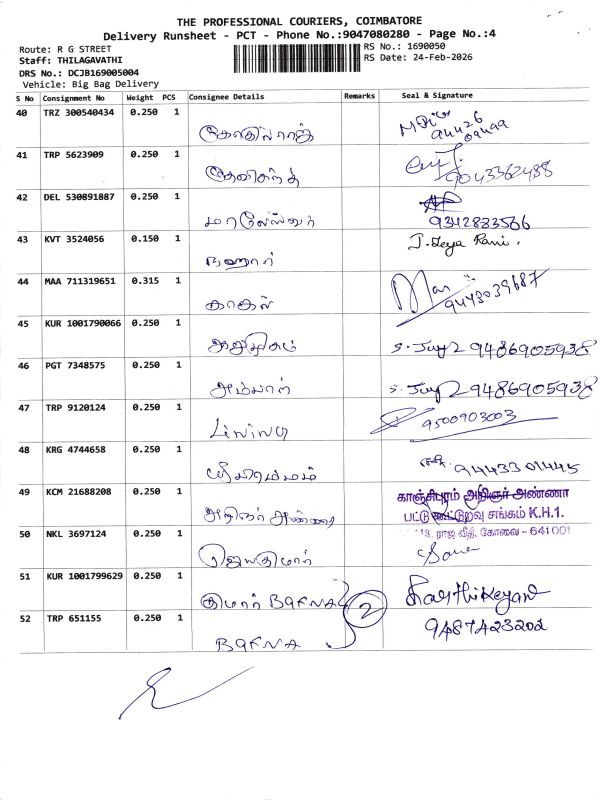 THE PROFESSIONAL COURIERS, COIMBATORE
Delivery Runsheet - PCT - Phone No.:9047080280 - Page No.:4
Route: R G STREET
Staff: THILAGAVATHI
DRS No.: DCJB169005004
Vehicle: Big Bag Delivery
RS No.: 1690050
RS Date: 24-Feb-2026
S No Consignment No Weight PCS Consignee Details Remarks Seal & Signature
40 TRZ 300540434 0.250 1 94426
09499
41 TRP 5623909 0.250 1 9043362488
42 DEL 530891887 0.250 1 9342883566
43 KVT 3524056 0.150 1 J. Jeya Rani.
44 MAA 711319651 0.315 1 காதல் 9443039687
45 KUR 1001790066 0.250 1 9486905938
46 PGT 7348575 0.250 1 அம்மாள் 9486905938
47 TRP 9120124 0.250 1 9500903003
48 KRG 4744658 0.250 1 9443301445
49 KCM 21688208 0.250 1 அறிஞர் அண்ணா காஞ்சிபுரம் அறிஞர் அண்ணா
பட்டு கூட்டுறவு சங்கம் K.H.1.
ராஜ வீதி, கோவை - 641001
50 NKL 3697124 0.250 1 ஜெயகுமார்
51 KUR 1001799629 0.250 1 குமார் 2 Karthikeyan
52 TRP 651155 0.250 1 9487423202